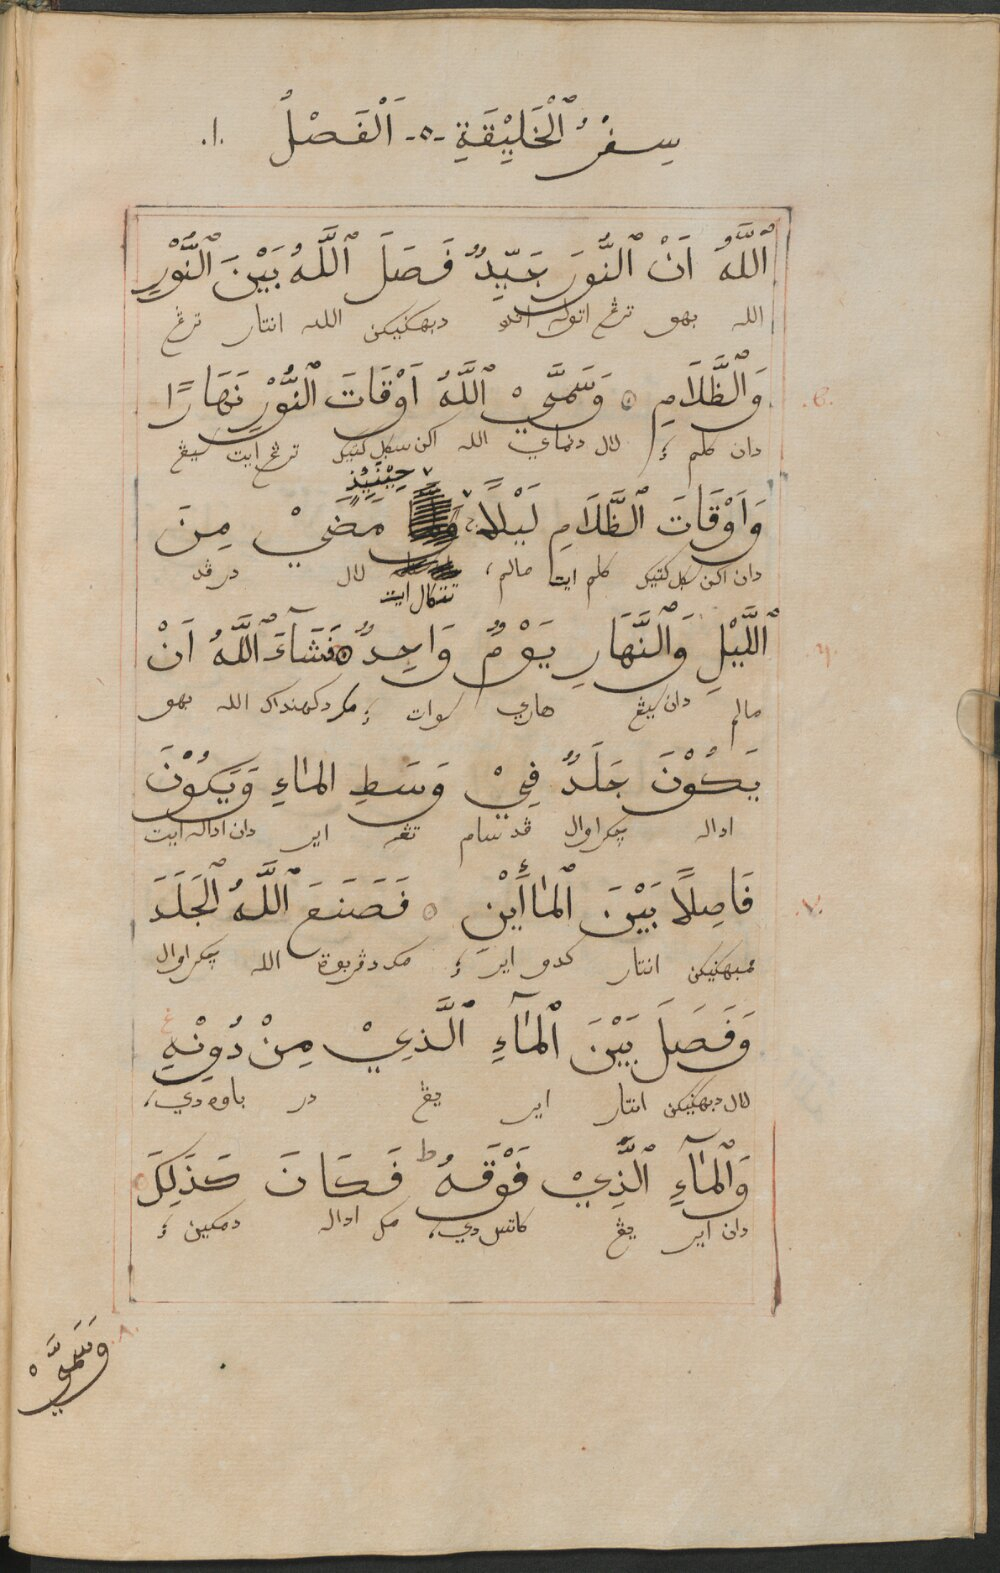 سِفْرُ ٱلْخَلِيْقَةِ -٥- اَلْفَصْلُ .١.
ٱللَّهُ اَنْ ٱلنُّورَ جَيِّدٌ فَصَلَ ٱللَّهُ بَيْنَ ٱلنُّوْرِ
الله بهو ترڠ اتوله دبهكيكن الله انتار ترڠ
وَٱلظَّلَامِ ۞ وَسَمَّيْ ٱللَّهُ اَوْقَاتَ ٱلنُّوْرِ نَهَارًا .٥.
دان كلم ؛ لال دنماي الله اكن سكل كتيك ترڠ ايت سيڠ
حِيْنَئِذٍ
وَاَوْقَاتَ ٱلظَّلَامِ لَيْلًا مَضَيْ مِنَ
دان اكن سكل كتيك كلم ايت مالم، لال درڤد
تتكال ايت
ٱللَّيْلِ وَٱلنَّهَارِ يَوْمٌ وَاحِدٌ ۞ فَشَآءَ ٱللَّهُ اَنْ .٦.
مالم دان سيڠ هاري سوات ؛ مك دكهنداك الله بهو
يَكُوْنَ جَلَدٌ فِيْ وَسَطِ المٰاءِ وَيَكُوْنَ
اداله چكراوال ڤد سام تڠه اير دان اداله ايت
فَاصِلًا بَيْنَ ٱلْمٰاأَيْنِ ۞ فَصَنَعَ ٱللَّهُ ٱلْجَلَدَ .٧.
ممبهكيكن انتار كدو اير ؛ مك دڤربوة الله چكراوال
وَفَصَلَ بَيْنَ ٱلْمٰآءِ ٱلَّذِيْ مِنْ دُوْنِهِ
لال دبهكيكن انتار اير يڠ در باوه دي،
وَٱلْمٰآءِ ٱلَّذِيْ فَوْقَهُ ط فَكَانَ كَذٰلِكَ
دان اير يڠ كاتس دي، مك اداله دمكين ؛
.٨.
وَسَمَّيْ